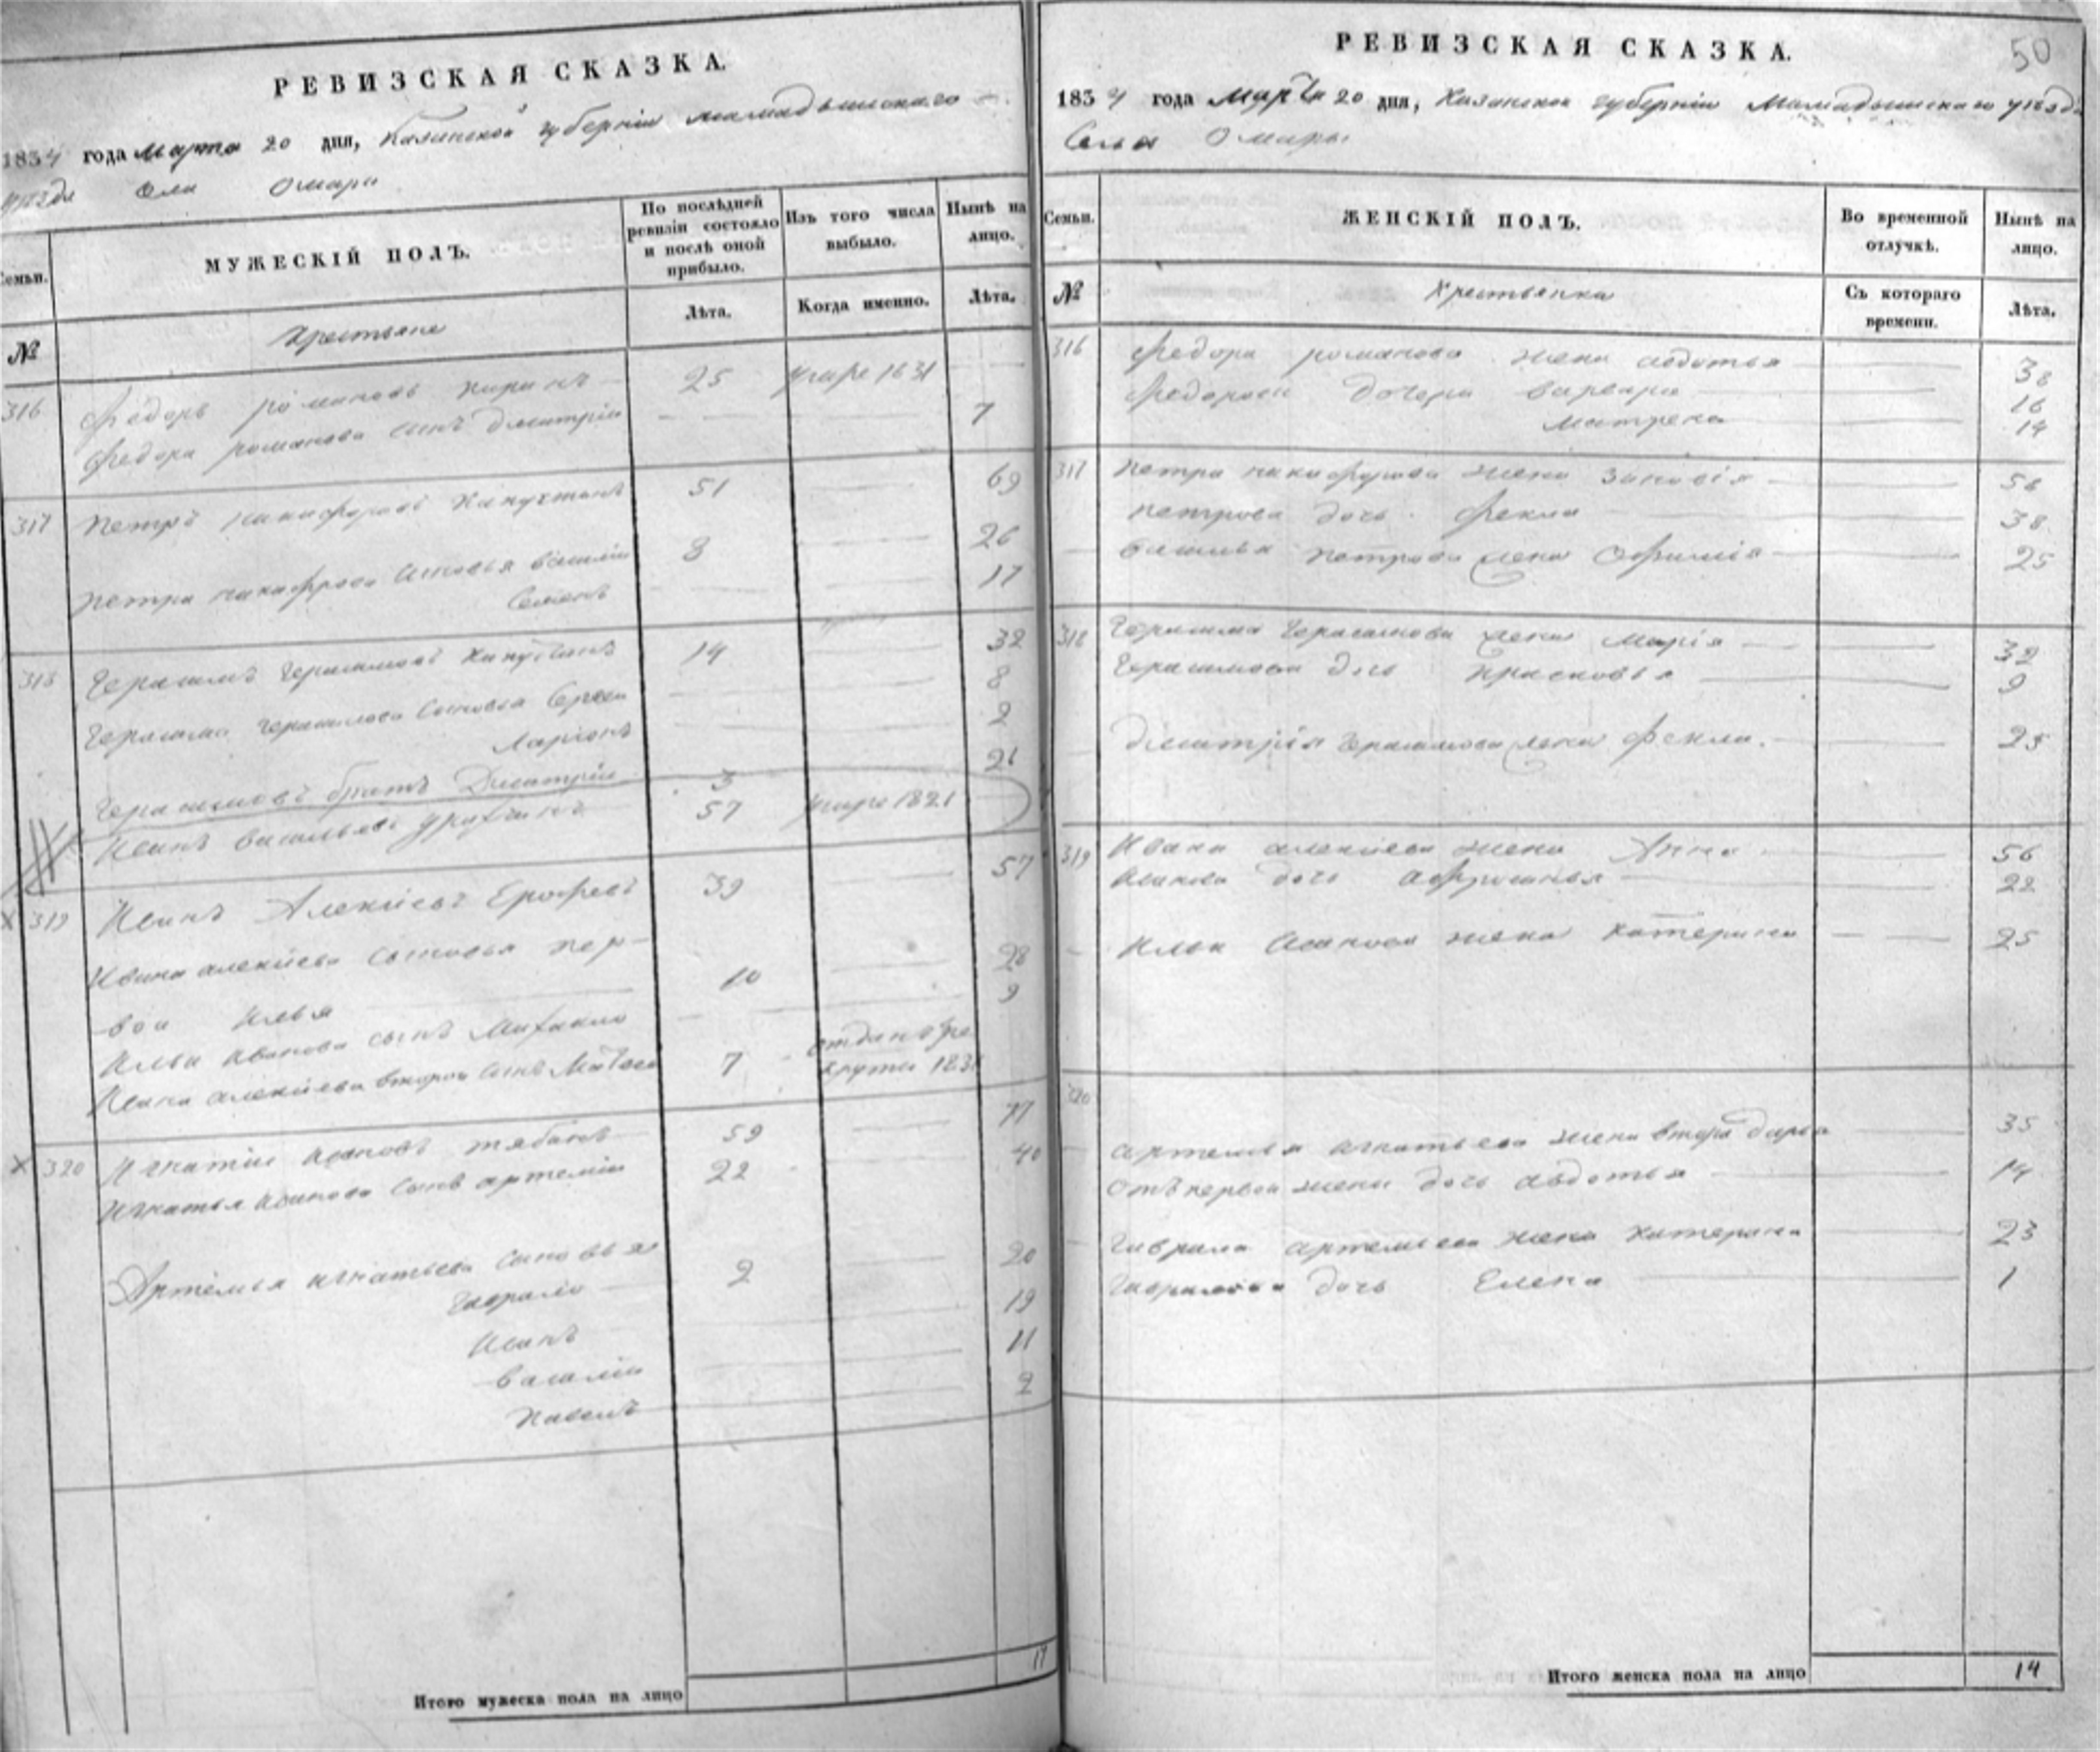 РЕВИЗСКАЯ СКАЗКА.
1834 года марта 20 дня, Казанской губернiи мамадышскаго
уѣзда села Омары
Семьи.
МУЖЕСКIЙ ПОЛЪ.
По послѣдней ревизiи состояло и послѣ оной прибыло.
Изъ того числа выбыло.
Нынѣ на лицо.
№
крестьяне
Лѣта.
Когда именно.
Лѣта.
316 Федоръ романовъ 25 умре 1831
Федора романова сынъ Дмитрiи 7
317 Петръ никифоровъ 51 69
Петра никифрова сыновья васили 8 26
Семенъ 17
318 Герасимъ герасимовъ 14 32
Герасима герасимова сыновья Сергеи 8
Ларiонъ 2
Герасимовъ братъ Дмитрiи 3 21
Иванъ васильевъ 57 умре 1821
319 Иванъ Алексiевъ Ерофеевъ 39 57
Ивана алексiева сыновья пер-
вои илья 10 28
Ильи иванова сынъ Михаило 9
Ивана алексiева второи сынъ Матвеи 7 отданъ в ре
круты 1831
320 Игнатiи ивановъ 59 77
Игнатья иванова сынъ артемiи 22 40
Артемья игнатьева сыновья
гаврило 2 20
Иванъ 19
василiи 11
Павелъ 2
Итого мужеска пола на лицо 17
50
РЕВИЗСКАЯ СКАЗКА.
1834 года Марта 20 дня, Казанской губернiи Мамадышскаго уѣзда
Села Омары
Семьи.
ЖЕНСКIЙ ПОЛЪ.
Во временной отлучкѣ.
Нынѣ на лицо.
№
Крестьянки
Съ котораго времени.
Лѣта.
316 Федора романова жена авдотья 38
Федоровы дочери варвара 16
матрена 14
317 Петра никифорова жена зиновiя 56
петрова дочь Фекла 38
василья петрова жена Офимiя 25
318 Герасима Герасимова жена Марiя 32
Герасимова дочь прасковья 9
Дмитрiя Герасимова жена Фекла. 25
319 Ивана алексiева жена Анна 56
Иванова дочь афросинья 22
Ильи Иванова жена катерина 25
320
артемья игнатьева жена втора дарья 35
отъ первои жены дочь авдотья 14
гаврила артемьева жена катерина 23
гаврилова дочь Елена 1
Итого женска пола на лицо 14